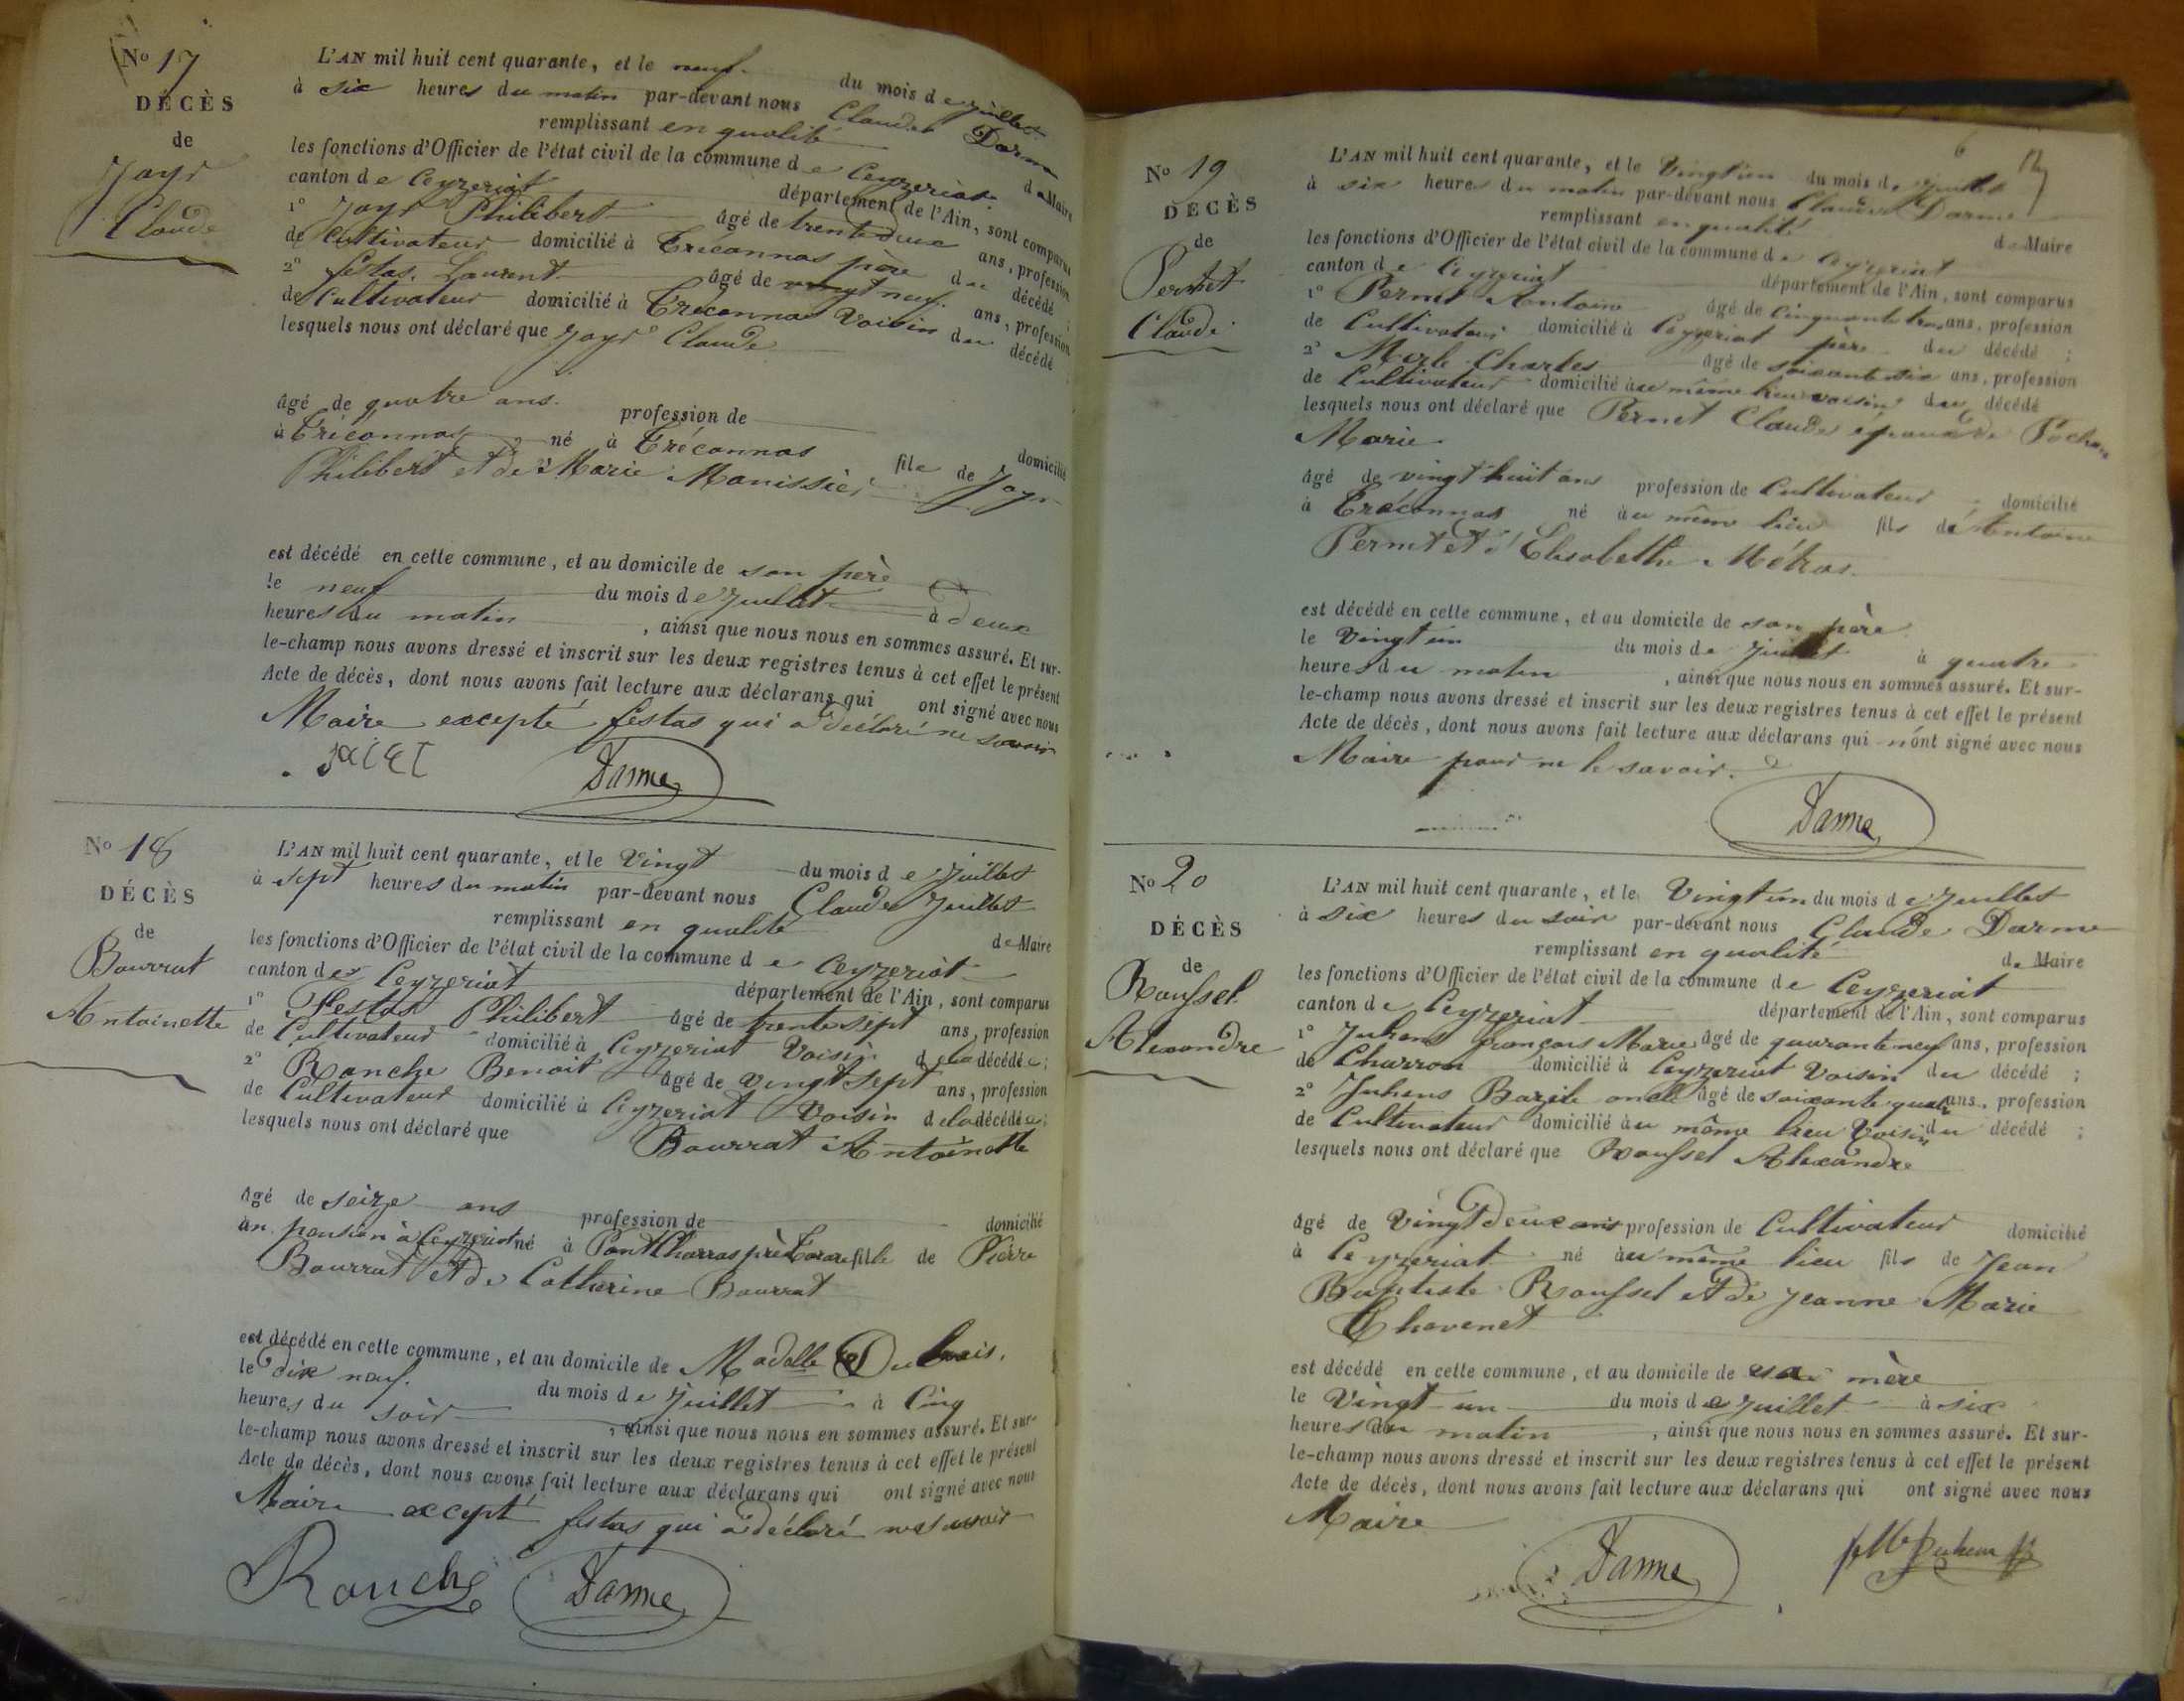 No 17
DÉCÈS
de
Joyr
Claude
L'AN mil huit cent quarante, et le neuf du mois de juillet
à six heures du matin par-devant nous Claude Darme
remplissant en qualité de Maire
les fonctions d'Officier de l'état civil de la commune de Ceyzeriat
canton de Ceyzeriat département de l'Ain, sont comparus
1° Joyr Philibert âgé de trente deux ans, profession
de Cultivateur domicilié à Tréconnas père du décédé ;
2° festas Laurent âgé de vingt neuf ans, profession
de Cultivateur domicilié à Tréconnas Voisin du décédé
lesquels nous ont déclaré que Joyr Claude
âgé de quatre ans profession de domicilié
à Tréconnas né à Tréconnas fils de Joyr
Philibert et de Marie Monissier
est décédé en cette commune, et au domicile de son père
le neuf du mois de juillet à deux
heures du matin , ainsi que nous nous en sommes assuré. Et sur-
le-champ nous avons dressé et inscrit sur les deux registres tenus à cet effet le présent
Acte de décès, dont nous avons fait lecture aux déclarans qui ont signé avec nous
Maire excepté festas qui a déclaré ne savoir
Darme
No 18
DÉCÈS
de
Bourrat
Antoinette
L'AN mil huit cent quarante, et le Vingt du mois de juillet
à sept heures du matin par-devant nous Claude juillet
remplissant en qualité de Maire
les fonctions d'Officier de l'état civil de la commune de Ceyzeriat
canton de Ceyzeriat département de l'Ain, sont comparus
1° Festas Philibert âgé de trente sept ans, profession
de Cultivateur domicilié à Ceyzeriat Voisin de la décédée ;
2° Ronche Benoit âgé de Vingt sept ans, profession
de Cultivateur domicilié à Ceyzeriat Voisin de la décédée ;
lesquels nous ont déclaré que Bourrat Antoinette
âgé de seize ans profession de domicilié
en pension à Ceyzeriat né à Pont Charras près Tarare fille de Pierre
Bourrat et de Catherine Bourrat
est décédé en cette commune, et au domicile de Madelle Dubois,
le dix neuf du mois de juillet à Cinq
heures du soir , ainsi que nous nous en sommes assuré. Et sur-
le-champ nous avons dressé et inscrit sur les deux registres tenus à cet effet le présent
Acte de décès, dont nous avons fait lecture aux déclarans qui ont signé avec nous
Maire excepté festas qui a déclaré ne savoir
Ronche Darme
6
No 19
DÉCÈS
de
Pernet
Claude
L'AN mil huit cent quarante, et le Vingt un du mois de juillet
à six heures du matin par-devant nous Claude Darme
remplissant en qualité de Maire
les fonctions d'Officier de l'état civil de la commune de Ceyzeriat
canton de Ceyzeriat département de l'Ain, sont comparus
1° Pernet Antoine âgé de Cinquante ans, profession
de Cultivateur domicilié à Ceyzeriat père du décédé ;
2° Morle Charles âgé de soixante six ans, profession
de Cultivateur domicilié au même lieu voisin du décédé
lesquels nous ont déclaré que Pernet Claude époux de Pochon
Marie
âgé de vingt huit ans profession de Cultivateur domicilié
à Tréconnas né au même lieu fils de Antoine
Pernet et d'Elisabeth Métras
est décédé en cette commune, et au domicile de son père
le Vingt un du mois de juillet à quatre
heures du matin , ainsi que nous nous en sommes assuré. Et sur-
le-champ nous avons dressé et inscrit sur les deux registres tenus à cet effet le présent
Acte de décès, dont nous avons fait lecture aux déclarans qui n'ont signé avec nous
Maire pour ne le savoir.
Darme
No 20
DÉCÈS
de
Roussel
Alexandre
L'AN mil huit cent quarante, et le Vingt un du mois de juillet
à six heures du soir par-devant nous Claude Darme
remplissant en qualité de Maire
les fonctions d'Officier de l'état civil de la commune de Ceyzeriat
canton de Ceyzeriat département de l'Ain, sont comparus
1° Juhens françois Marie âgé de quarante neuf ans, profession
de Charron domicilié à Ceyzeriat Voisin du décédé ;
2° Juhens Bazile oncle âgé de soixante quatre ans, profession
de Cultivateur domicilié au même lieu Voisin du décédé ;
lesquels nous ont déclaré que Roussel Alexandre
âgé de Vingt deux ans profession de Cultivateur domicilié
à Ceyzeriat né au même lieu fils de Jean
Baptiste Roussel et de Jeanne Marie
Chavenet
est décédé en cette commune, et au domicile de sa mère
le Vingt un du mois de juillet à six
heures du matin , ainsi que nous nous en sommes assuré. Et sur-
le-champ nous avons dressé et inscrit sur les deux registres tenus à cet effet le présent
Acte de décès, dont nous avons fait lecture aux déclarans qui ont signé avec nous
Maire
Darme